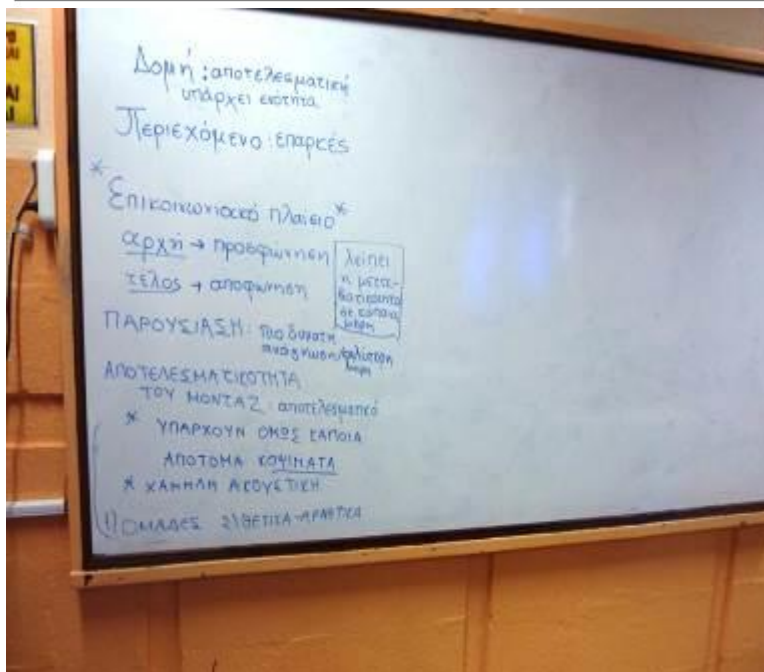 Δομή : αποτελεσματική
υπάρχει ενότητα
Περιεχόμενο : επαρκές
* Επικοινωνιακό πλαίσιο *
αρχή → προσφώνηση
τέλος → αποφώνηση
λείπει
η μεττα-
βατικότητα
σε κάποια
μέρη
ΠΑΡΟΥΣΙΑΣΗ: πιο δυνατή
ανάγνωση/καλύτερη
ΑΠΟΤΕΛΕΣΜΑΤΙΚΟΤΗΤΑ
ΤΟΥ ΜΟΝΤΑΖ : αποτελεσματικό
* ΥΠΑΡΧΟΥΝ ΟΜΩΣ ΚΑΠΟΙΑ
ΑΠΟΤΟΜΑ ΚΟΨΙΜΑΤΑ
* ΧΑΜΗΛΗ ΑΚΟΥΣΤΙΚΗ
1) ΟΜΑΔΕΣ 2) ΘΕΤΙΚΑ-ΑΡΝΗΤΙΚΑ